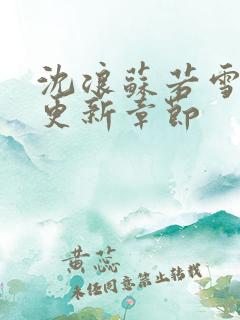 沈浪蘇若雪
更新章節
黄蕊
未经同意禁止转载